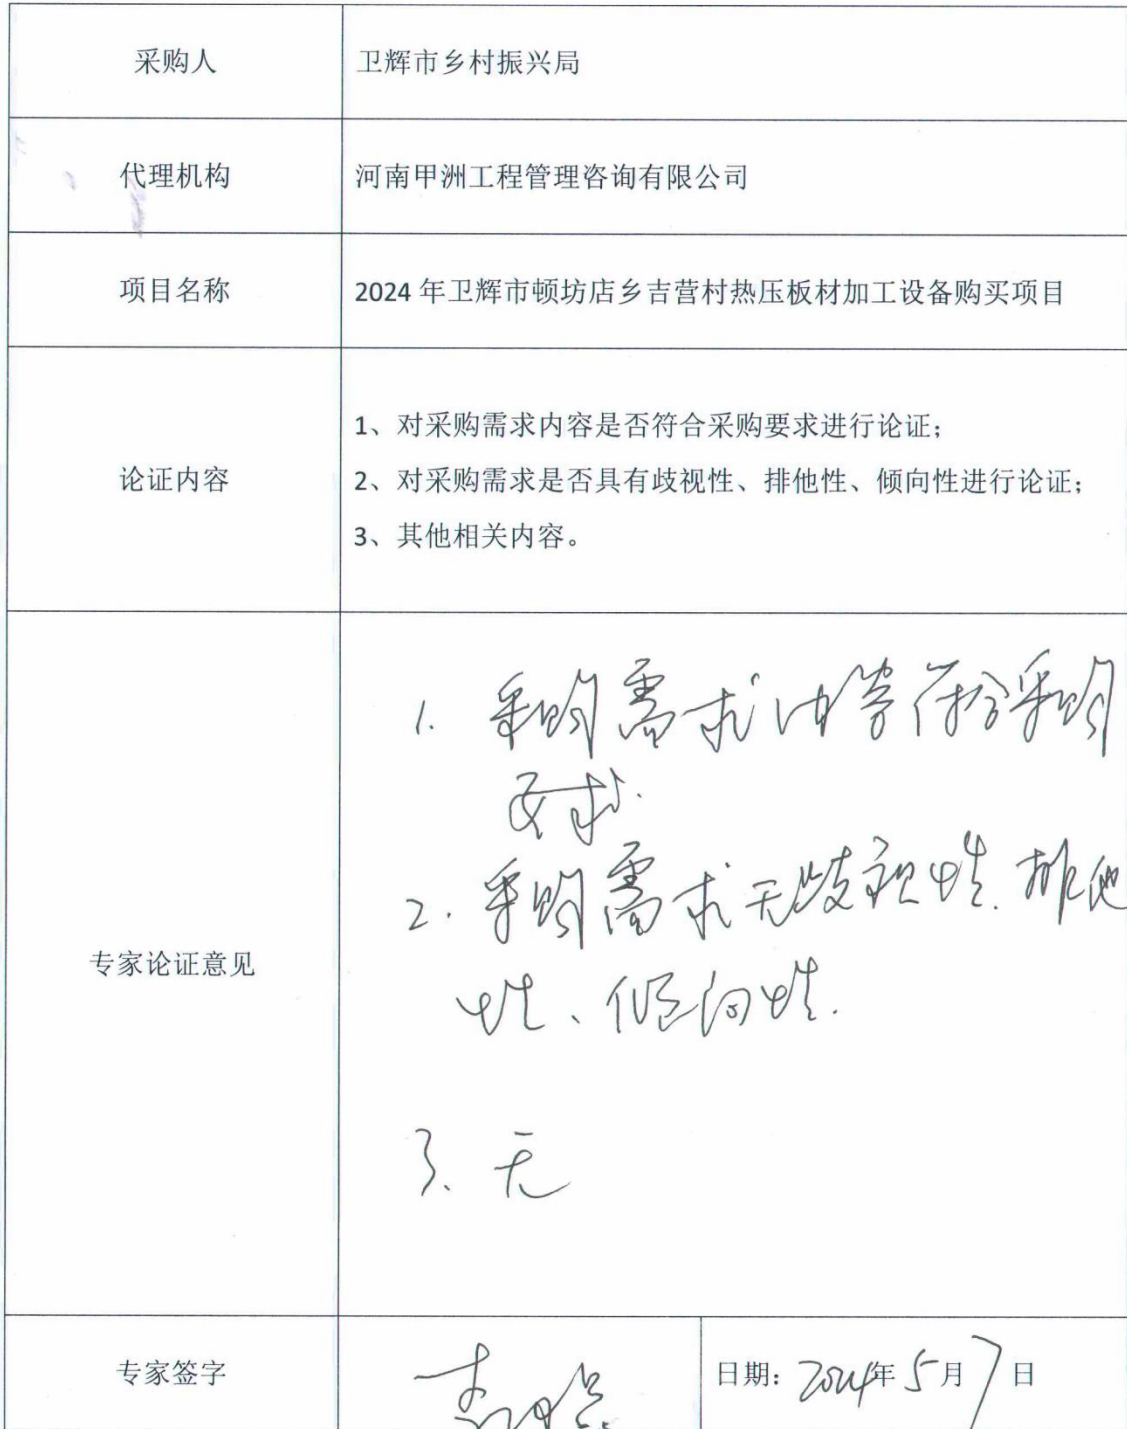 采购人 卫辉市乡村振兴局
代理机构 河南甲洲工程管理咨询有限公司
项目名称 2024年卫辉市顿坊店乡吉营村热压板材加工设备购买项目
论证内容
1、对采购需求内容是否符合采购要求进行论证；
2、对采购需求是否具有歧视性、排他性、倾向性进行论证；
3、其他相关内容。
专家论证意见
1. 采购需求内容符合采购
要求.
2. 采购需求无歧视性.排他
性、倾向性.
3. 无
专家签字 日期：2024年5月7日